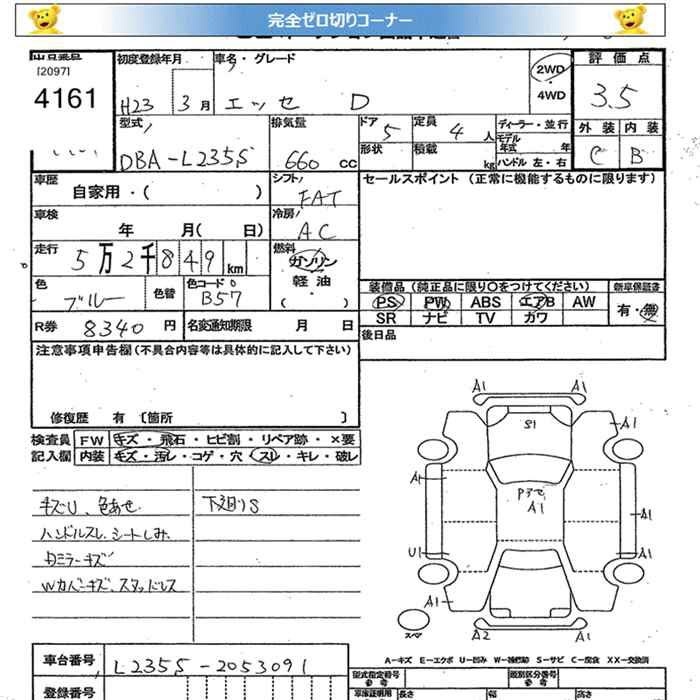 完全ゼロ切りコーナー
[2097]
4161
初度登録年月
H23 3月
車名・グレード
エッセ D
2WD
・
4WD
評価点
3.5
外装 内装
C B
型式
DBA-L235S
排気量
660 cc
ドア 5
形状
定員 4 人
積載 kg
ディーラー・並行
モデル年式 年
ハンドル 左・右
車歴
自家用・( )
シフト
FAT
セールスポイント (正常に機能するものに限ります)
車検
年 月( 日)
冷房
AC
走行
5万2千849km
燃料
ガソリン
軽油
( ・ )
色
ブルー
色替
色コード
B57
装備品(純正品に限り○をつけてください)
新車保証書
PS PW ABS エアB AW
SR ナビ TV カワ
有・無
R券 8340 円
名変通知期限 月 日
後日品
注意事項申告欄(不具合内容等は具体的に記入して下さい)
修復歴 有 〔箇所 〕
検査員 FW キズ・飛石・ヒビ割・リペア跡・×要
記入欄 内装 キズ・汚レ・コゲ・穴・スレ・キレ・破レ
キズU、色あせ
下廻りS
ハンドルスレ、シートしみ
内ミラーキズ
Wカバーキズ、スタッドレス
A1 A1
S1
A1
A1
Pアセ
A1
A1
U1
A1
A1
A1
スペア
A2 A1
A-キズ E-エクボ U-凹み W-補修跡 S-サビ C-腐食 XX-交換済
車台番号
L235S-2053091
登録番号
型式指定番号
参考
類別区分番号
参考
車庫証明用 長さ 幅 高さ